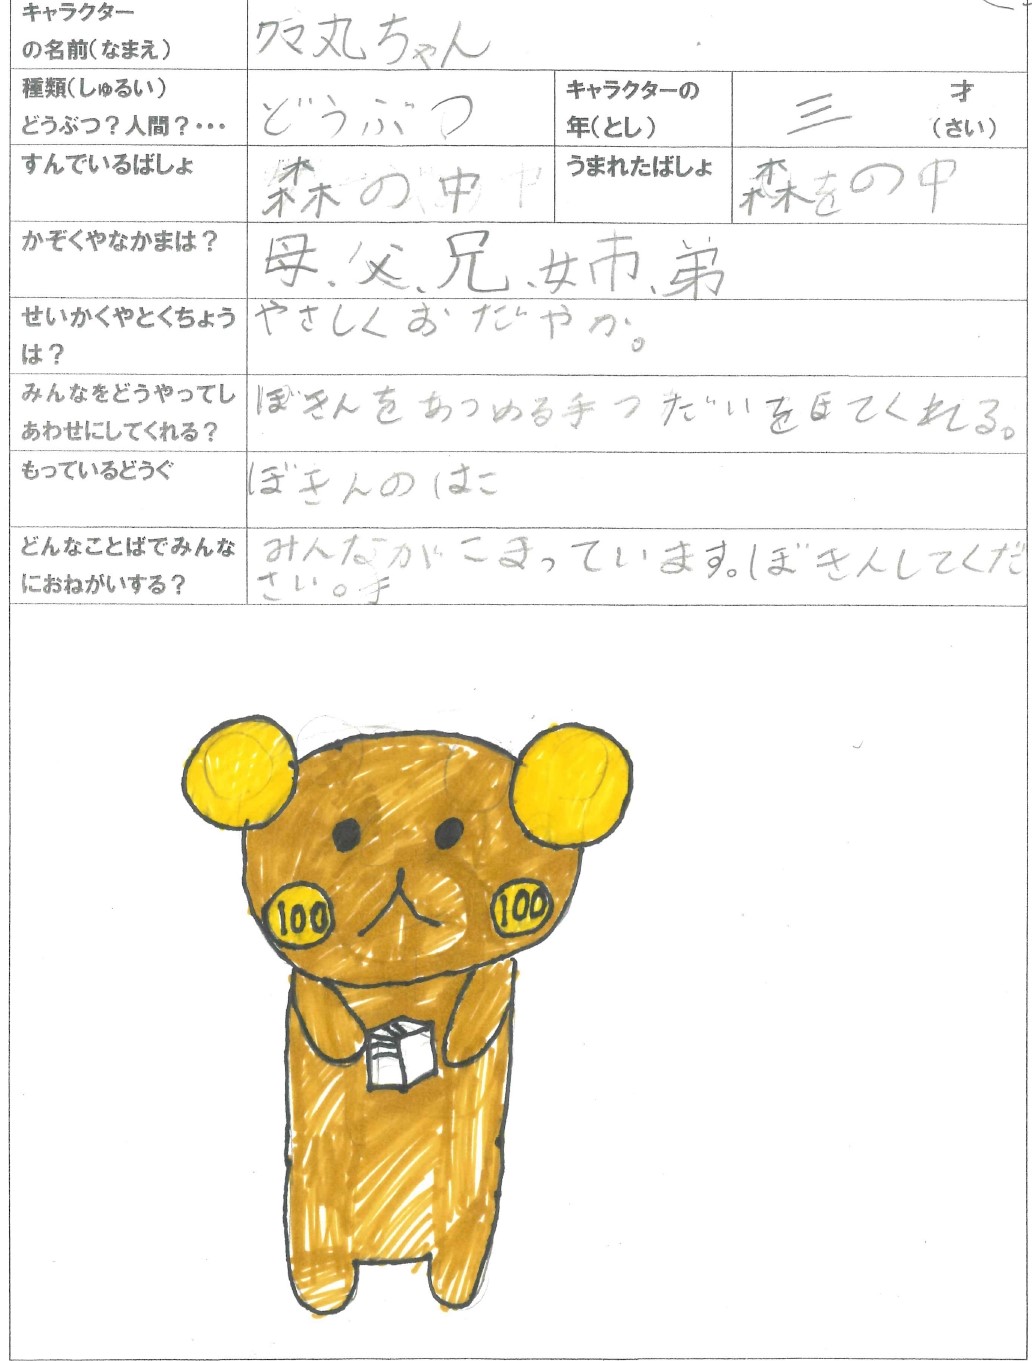 キャラクター
の名前(なまえ)
クマ丸ちゃん
種類(しゅるい)
どうぶつ？人間？・・・
どうぶつ
キャラクターの
年(とし)
三
才
(さい)
すんでいるばしょ
森の中
うまれたばしょ
森をの中
かぞくやなかまは？
母、父、兄、姉、弟
せいかくやとくちょう
は？
やさしくおだやか。
みんなをどうやってし
あわせにしてくれる？
ぼきんをあつめる手つだいをしてくれる。
もっているどうぐ
ぼきんのはこ
どんなことばでみんな
におねがいする？
みんながこまっています。ぼきんしてくだ
さい。
100
100